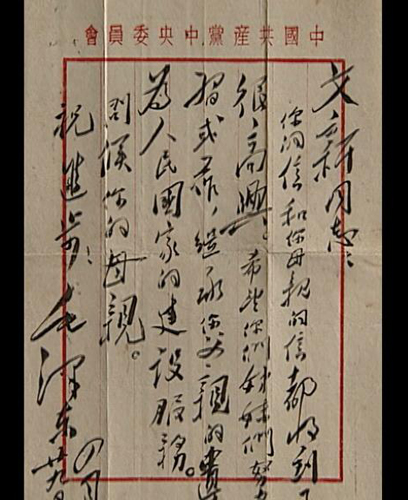 中國共產黨中央委員會
文新同志：
你的信和你母親的信都收到了
很高興。希望你們姊妹們努
習或工作，繼承你父親的遺
為人民國家的建設服務。
問候你的母親。
祝進步！
毛澤東
四月
廿九日